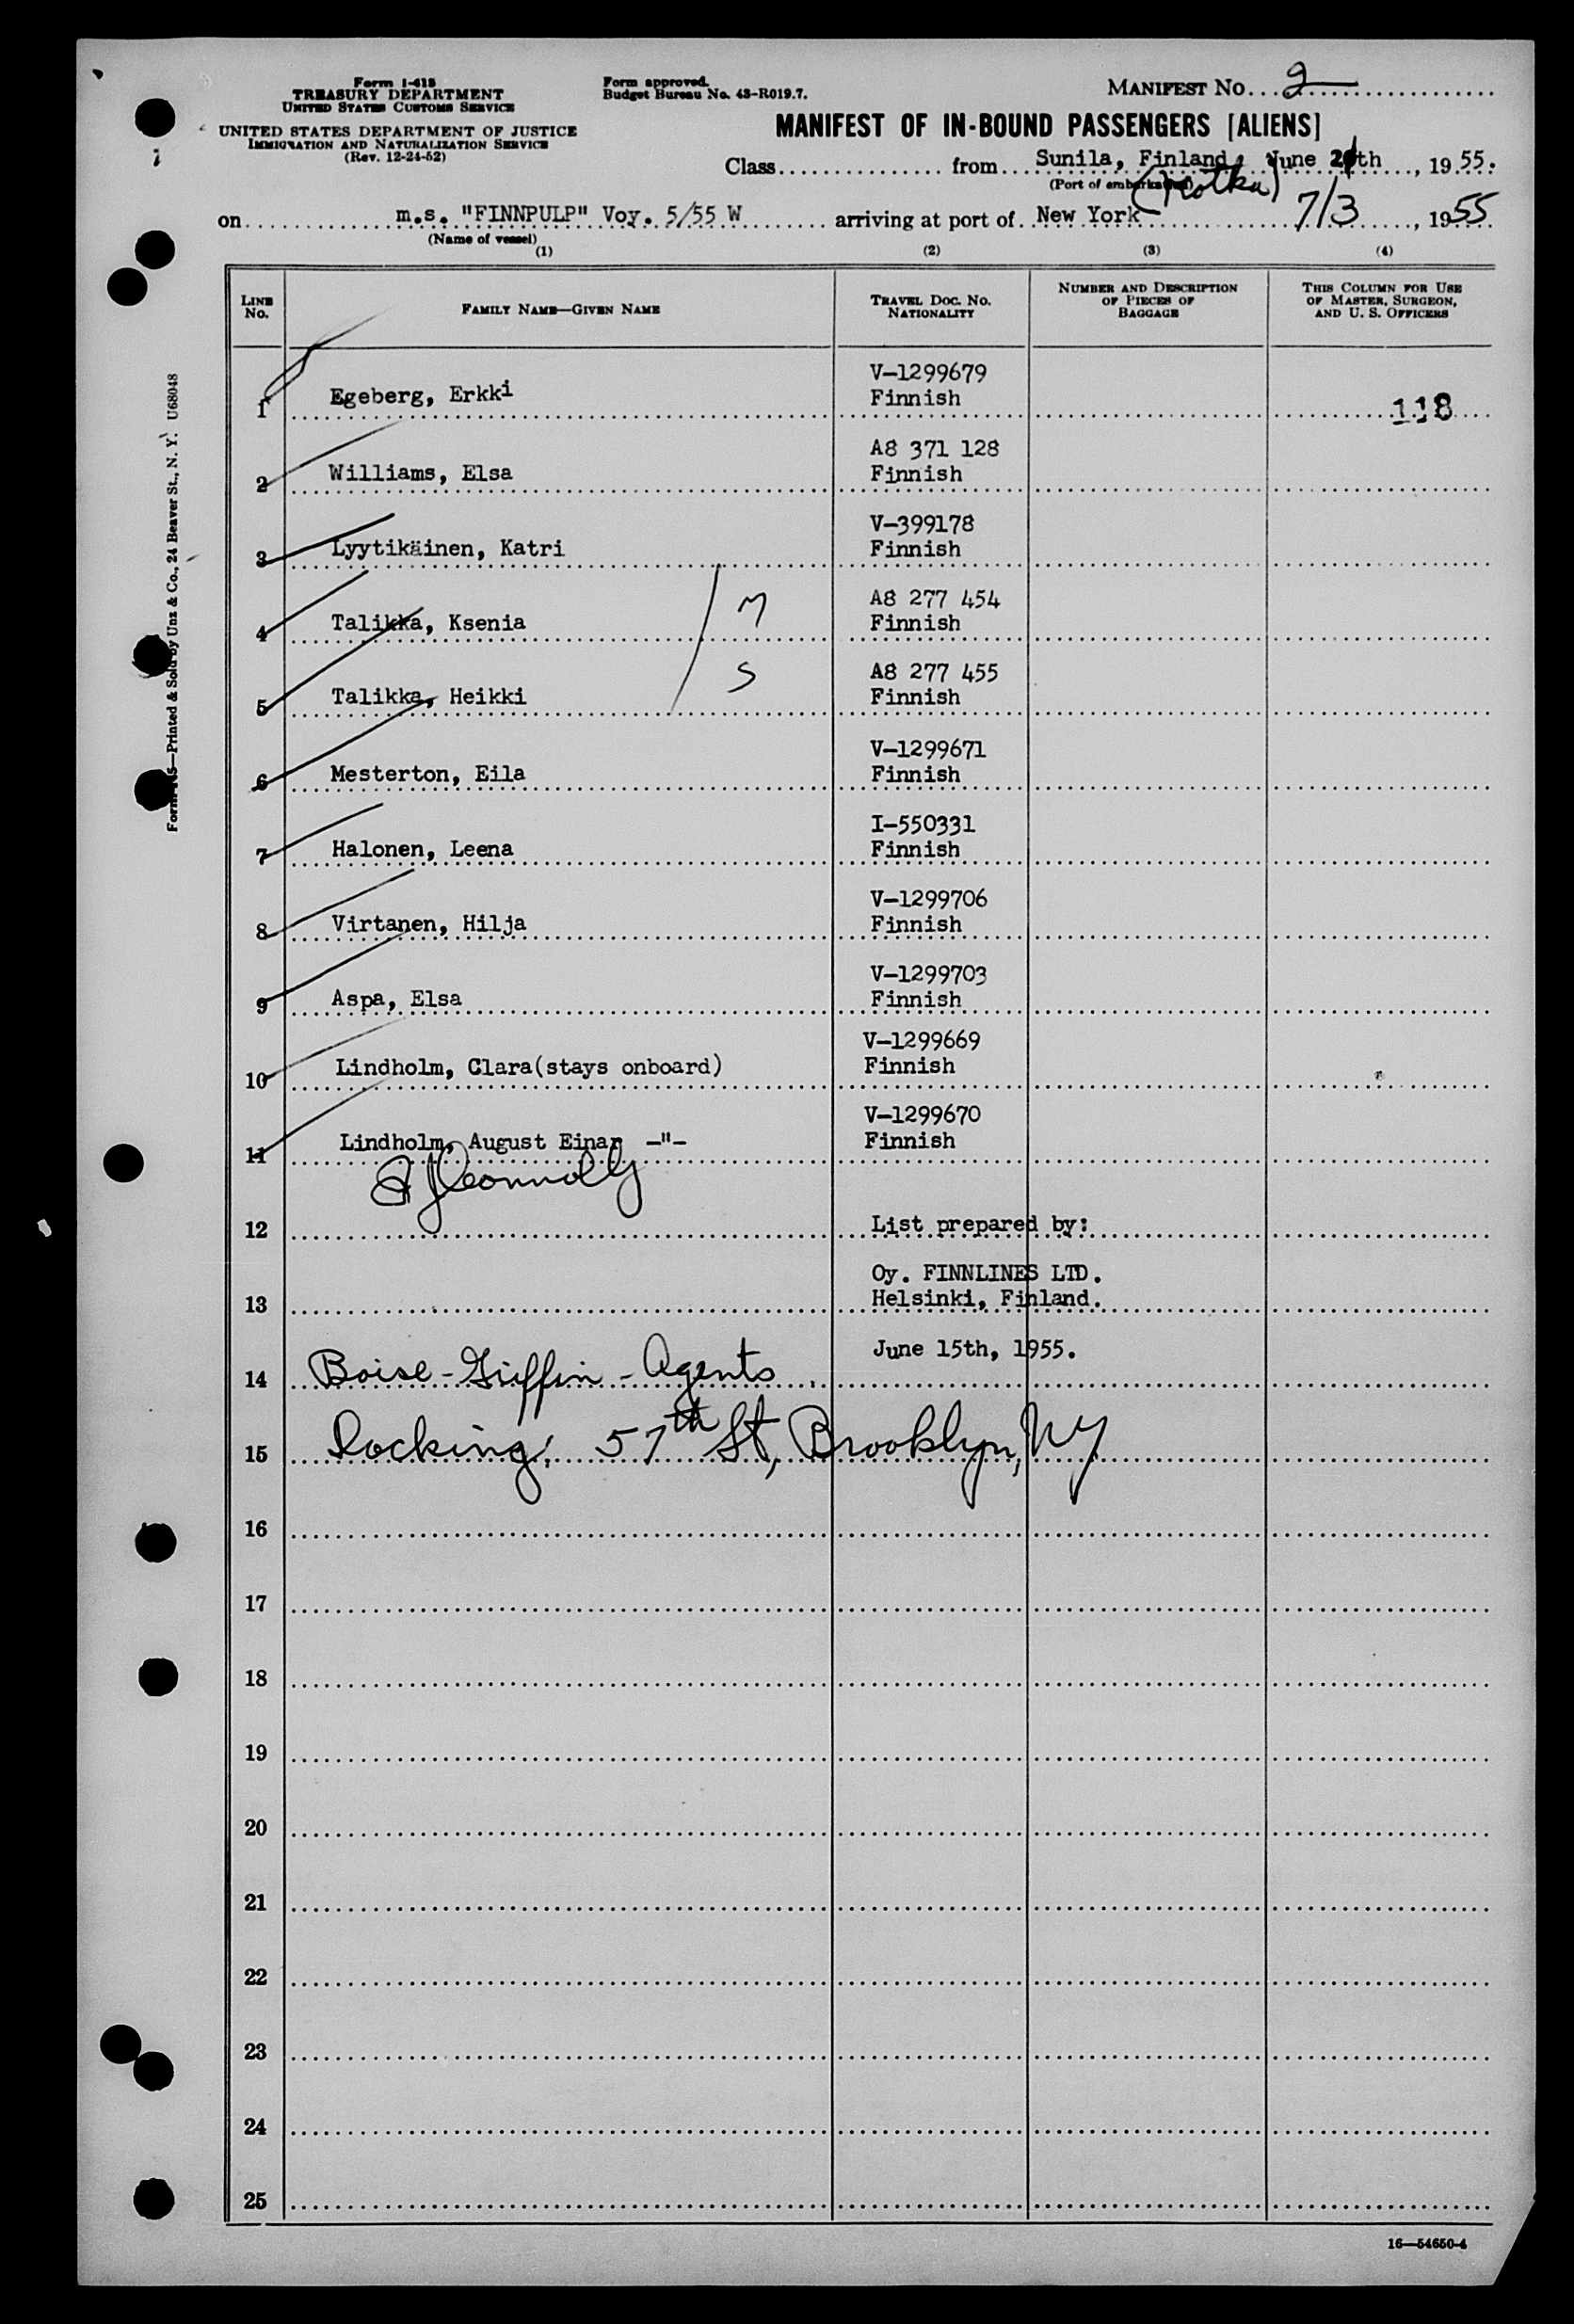 Form I-418
TREASURY DEPARTMENT
UNITED STATES CUSTOMS SERVICE
UNITED STATES DEPARTMENT OF JUSTICE
IMMIGRATION AND NATURALIZATION SERVICE
(Rev. 12-24-52)
Form approved.
Budget Bureau No. 43-R019.7.
MANIFEST No. 2
MANIFEST OF IN-BOUND PASSENGERS [ALIENS]
Class from Sunila, Finland, June th, 1955.
(Port of embarkation) (Kotka)
on m.s. "FINNPULP" Voy. 5/55 W arriving at port of New York 7/3, 1955
(Name of vessel)
(1) (2) (3) (4)
LINE No. FAMILY NAME—GIVEN NAME TRAVEL DOC. NO. NATIONALITY NUMBER AND DESCRIPTION OF PIECES OF BAGGAGE THIS COLUMN FOR USE OF MASTER, SURGEON, AND U. S. OFFICERS
V-1299679
1 Egeberg, Erkki Finnish 118
A8 371 128
2 Williams, Elsa Finnish
V-399178
3 Lyytikäinen, Katri Finnish
A8 277 454
4 Talikka, Ksenia M Finnish
A8 277 455
5 Talikka, Heikki S Finnish
V-1299671
6 Mesterton, Eila Finnish
I-550331
7 Halonen, Leena Finnish
V-1299706
8 Virtanen, Hilja Finnish
V-1299703
9 Aspa, Elsa Finnish
V-1299669
10 Lindholm, Clara(stays onboard) Finnish
V-1299670
11 Lindholm, August Einar -"- Finnish
Connolly
12 List prepared by:
Oy. FINNLINES LTD.
13 Helsinki, Finland.
June 15th, 1955.
14 Boise-Griffin-Agents
15 Docking: 57th St, Brooklyn, NY
16
17
18
19
20
21
22
23
24
25
16—54650-4
—Printed & Sold by Unz & Co., 24 Beaver St., N. Y. U68048